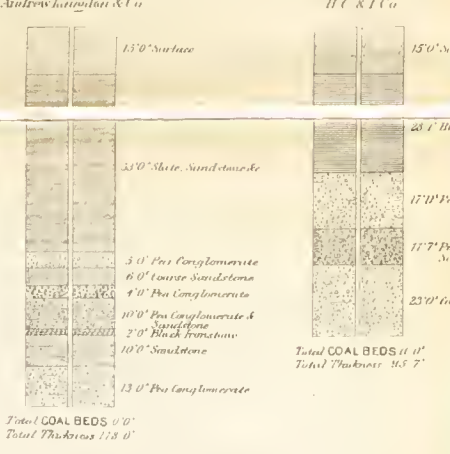 Andrew Langdon & Co
H C & I Co
15'0" Surface
53'0" Slate, Sandstone &c
5'0" Pea Conglomerate
6'0" Coarse Sandstone
4'0" Pea Conglomerate
10'0" Pea Conglomerate &
Sandstone
2'0" Black Ironstone
10'0" Sandstone
13'0" Pea Conglomerate
Total COAL BEDS 0'0"
Total Thickness 118'0"
15'0"
23'1"
17'11"
11'7"
23'0"
Total COAL BEDS 0'0"
Total Thickness 95'7"